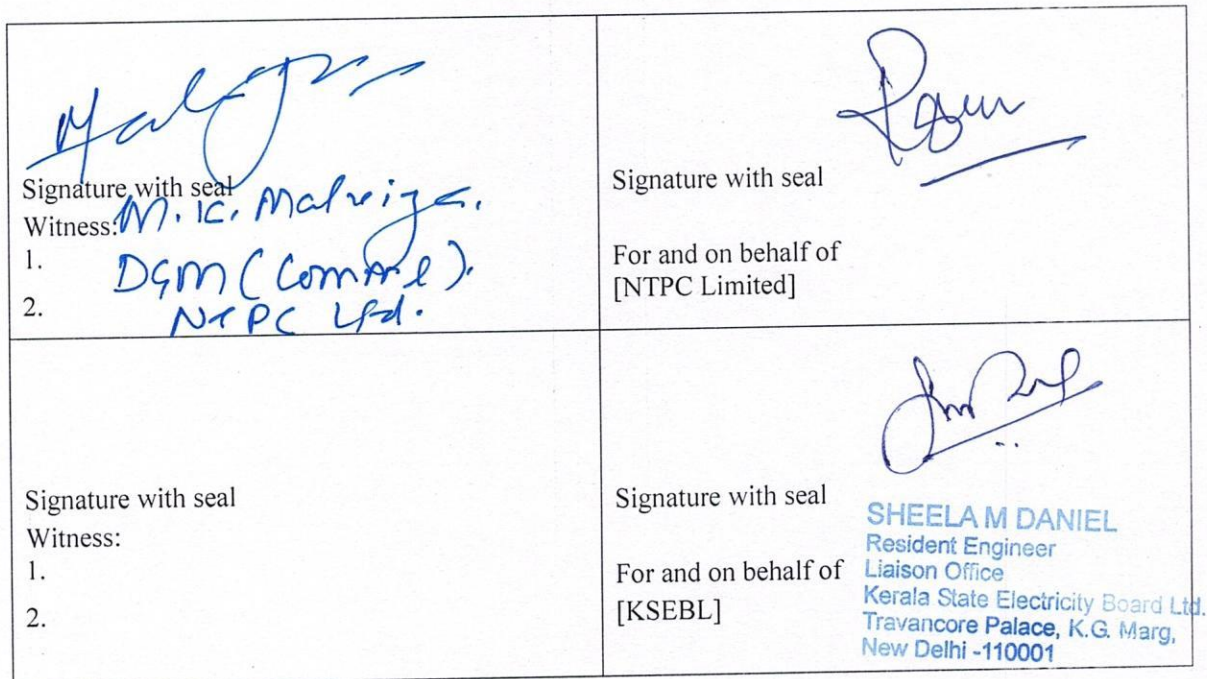 Signature with seal
Witness: M. K. Malviya.
1. DGM (Comml).
2. NTPC Ltd.
Signature with seal
For and on behalf of
[NTPC Limited]
Signature with seal
Witness:
1.
2.
Signature with seal
For and on behalf of
[KSEBL]
SHEELA M DANIEL
Resident Engineer
Liaison Office
Kerala State Electricity Board Ltd.
Travancore Palace, K.G. Marg,
New Delhi -110001